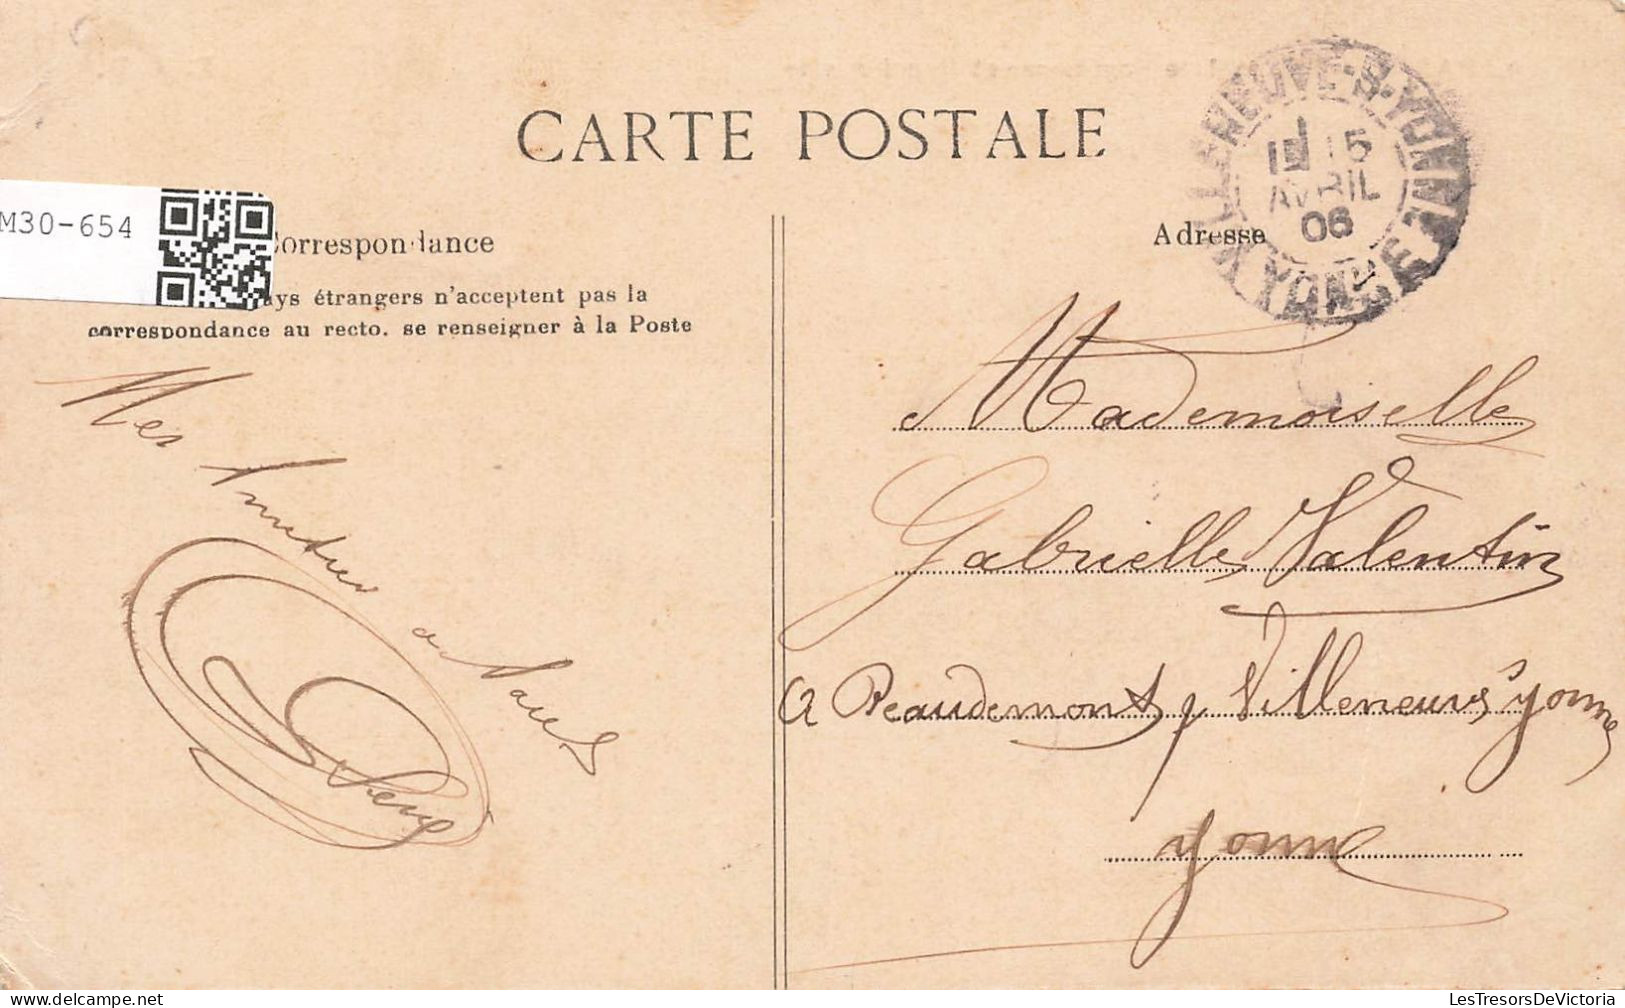 CARTE POSTALE
VILLENEUVE-S-YONNE
15
AVRIL
06
YONNE
M30-654
Correspondance
Adresse
ays étrangers n'acceptent pas la
correspondance au recto. se renseigner à la Poste
Mes
amitiés
a
Mademoiselle
Gabrielle Valentin
a Beaudemont p Villeneuve s Yonne
Yonne
LesTresorsDeVictoria
www.delcampe.net